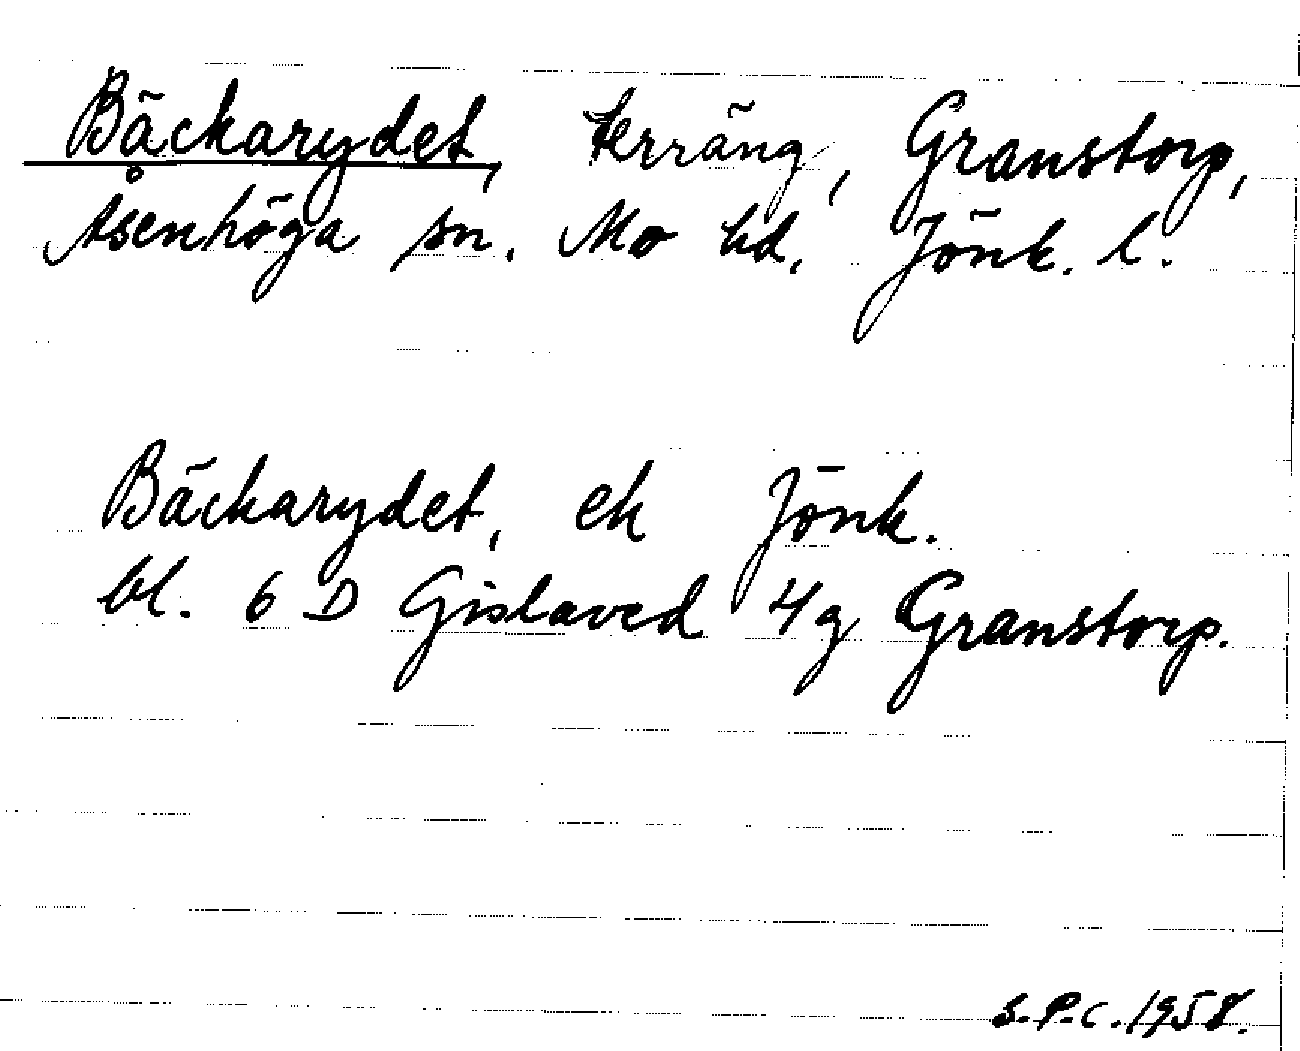 Bäckarydet, terräng, Granstorp,
Åsenhöga sn. Mo hd. Jönk. l.
Bäckarydet, ek Jönk.
bl. 6 D Gislaved 4g Granstorp.
S.P.C. 1958.